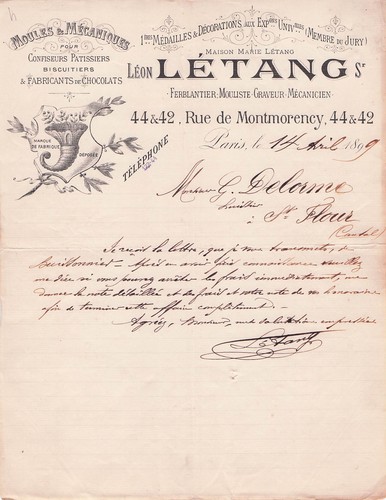 MOULES & MÉCANIQUES
POUR
CONFISEURS PATISSIERS
BISCUITIERS
& FABRICANTS DE CHOCOLATS
MARQUE DE FABRIQUE
DÉPOSÉE
TÉLÉPHONE
1ères MÉDAILLES & DÉCORATIONS AUX EXPons UNIVlles (MEMBRE DU JURY)
MAISON MARIE LÉTANG
LÉON LÉTANG Sr
FERBLANTIER-MOULISTE-GRAVEUR-MÉCANICIEN
44 & 42, RUE DE MONTMORENCY, 44 & 42
Paris, le 14 Avril 1899
Monsieur G. Delorme
à
St Flour
(Cantal)
Je reçois la lettre, que je vous transmets, de
après en avoir pris connaissance veuillez
me dire si vous pouvez arrêter les frais immédiatement, me
donner la note détaillée et des frais et votre note de vos honoraires
afin de terminer cette affaire complètement.
Agréez, Monsieur, mes salutations empressées
Létang